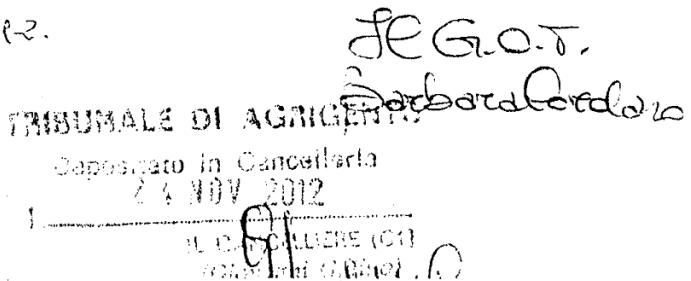 Il G.O.T.
Barbara Cordaro
TRIBUNALE DI AGRIGENTO
Depositato in Cancelleria
24 NOV 2012
IL CANCELLIERE (C1)